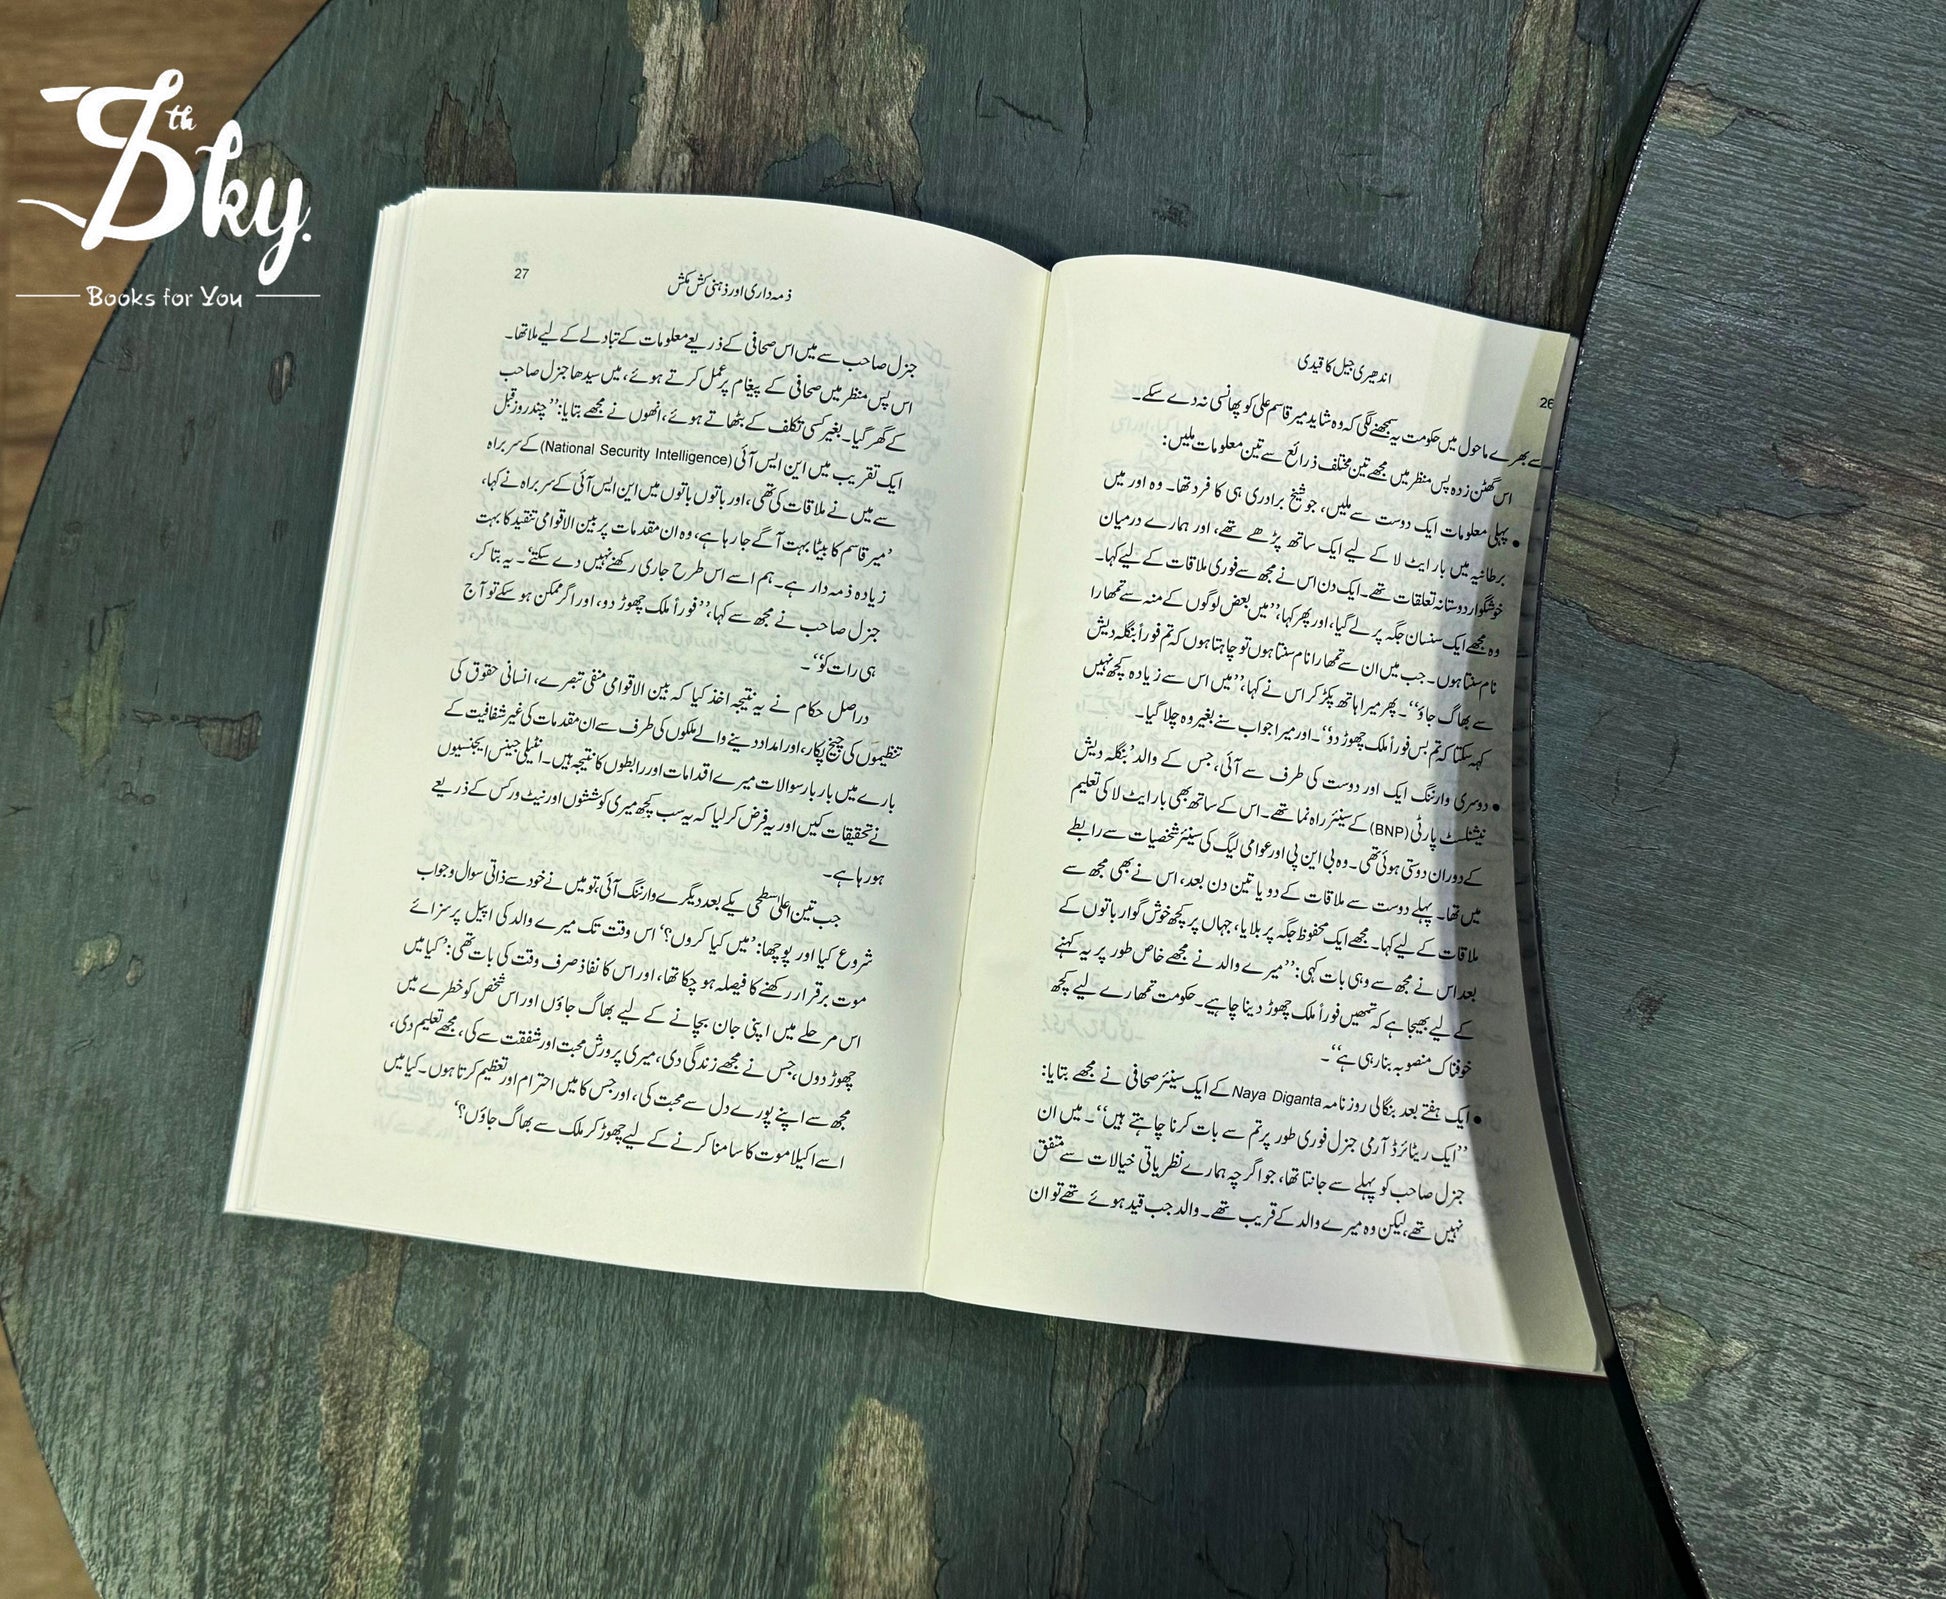 8th Sky.
Books for You
26
اندھیری جیل کا قیدی
بھرے ماحول میں حکومت یہ سمجھنے لگی کہ وہ شاید میر قاسم علی کو پھانسی نہ دے سکے۔
اس گھٹن زدہ پس منظر میں مجھے تین مختلف ذرائع سے تین معلومات ملیں:
• پہلی معلومات ایک دوست سے ملیں، جو شیخ برادری ہی کا فرد تھا۔ وہ اور میں
برطانیہ میں بار ایٹ لا کے لیے ایک ساتھ پڑھے تھے، اور ہمارے درمیان
خوشگوار دوستانہ تعلقات تھے۔ ایک دن اس نے مجھ سے فوری ملاقات کے لیے کہا۔
وہ مجھے ایک سنسان جگہ پر لے گیا، اور پھر کہا، ’’میں بعض لوگوں کے منہ سے تمھارا
نام سنتا ہوں۔ جب میں ان سے تمھارا نام سنتا ہوں تو چاہتا ہوں کہ تم فوراً بنگلہ دیش
سے بھاگ جاؤ‘‘۔ پھر میرا ہاتھ پکڑ کر اس نے کہا، ’’میں اس سے زیادہ کچھ نہیں
کہہ سکتا کہ تم بس فوراً ملک چھوڑ دو‘‘۔ اور میرا جواب سنے بغیر وہ چلا گیا۔
• دوسری وارننگ ایک اور دوست کی طرف سے آئی، جس کے والد ’بنگلہ دیش
نیشنلسٹ پارٹی (BNP) کے سینئر راہ نما تھے۔ اس کے ساتھ بھی بار ایٹ لا کی تعلیم
کے دوران دوستی ہوئی تھی۔ وہ بی این پی اور عوامی لیگ کی سینئر شخصیات سے رابطے
میں تھا۔ پہلے دوست سے ملاقات کے دو یا تین دن بعد، اس نے بھی مجھ سے
ملاقات کے لیے کہا۔ مجھے ایک محفوظ جگہ پر بلایا، جہاں پر کچھ خوش گوار باتوں کے
بعد اس نے مجھ سے وہی بات کہی: ’’میرے والد نے مجھے خاص طور پر یہ کہنے
کے لیے بھیجا ہے کہ تمھیں فوراً ملک چھوڑ دینا چاہیے۔ حکومت تمھارے لیے کچھ
خوفناک منصوبہ بنا رہی ہے‘‘۔
• ایک ہفتے بعد بنگالی روزنامہ Naya Diganta کے ایک سینئر صحافی نے مجھے بتایا:
’’ایک ریٹائرڈ آرمی جنرل فوری طور پر تم سے بات کرنا چاہتے ہیں‘‘۔ میں ان
جنرل صاحب کو پہلے سے جانتا تھا، جو اگرچہ ہمارے نظریاتی خیالات سے متفق
نہیں تھے، لیکن وہ میرے والد کے قریب تھے۔ والد جب قید ہوئے تھے تو ان
27
ذمہ داری اور ذہنی کش مکش
جنرل صاحب سے میں اس صحافی کے ذریعے معلومات کے تبادلے کے لیے ملا تھا۔
اس پس منظر میں صحافی کے پیغام پر عمل کرتے ہوئے، میں سیدھا جنرل صاحب
کے گھر گیا۔ بغیر کسی تکلف کے بٹھاتے ہوئے، انھوں نے مجھے بتایا: ’’چند روز قبل
ایک تقریب میں این ایس آئی (National Security Intelligence) کے سربراہ
سے میں نے ملاقات کی تھی، اور باتوں باتوں میں این ایس آئی کے سربراہ نے کہا،
’میر قاسم کا بیٹا بہت آگے جا رہا ہے، وہ ان مقدمات پر بین الاقوامی تنقید کا بہت
زیادہ ذمہ دار ہے۔ ہم اسے اس طرح جاری رکھنے نہیں دے سکتے‘۔ یہ بتا کر،
جنرل صاحب نے مجھ سے کہا، ’’فوراً ملک چھوڑ دو، اور اگر ممکن ہو سکے تو آج
ہی رات کو‘‘۔
دراصل حکام نے یہ نتیجہ اخذ کیا کہ بین الاقوامی منفی تبصرے، انسانی حقوق کی
تنظیموں کی چیخ پکار، اور امداد دینے والے ملکوں کی طرف سے ان مقدمات کی غیر شفافیت کے
بارے میں بار بار سوالات میرے اقدامات اور رابطوں کا نتیجہ ہیں۔ انٹیلی جینس ایجنسیوں
نے تحقیقات کیں اور یہ فرض کر لیا کہ یہ سب کچھ میری کوششوں اور نیٹ ورکس کے ذریعے
ہو رہا ہے۔
جب تین اعلیٰ سطحی یکے بعد دیگرے وارننگ آئی، تو میں نے خود سے ذاتی سوال و جواب
شروع کیا اور پوچھا: ’میں کیا کروں؟‘ اس وقت تک میرے والد کی اپیل پر سزائے
موت برقرار رکھنے کا فیصلہ ہو چکا تھا، اور اس کا نفاذ صرف وقت کی بات تھی: ’کیا میں
اس مرحلے میں اپنی جان بچانے کے لیے بھاگ جاؤں اور اس شخص کو خطرے میں
چھوڑ دوں، جس نے مجھے زندگی دی، میری پرورش محبت اور شفقت سے کی، مجھے تعلیم دی،
مجھ سے اپنے پورے دل سے محبت کی، اور جس کا میں احترام اور تعظیم کرتا ہوں۔ کیا میں
اسے اکیلا موت کا سامنا کرنے کے لیے چھوڑ کر ملک سے بھاگ جاؤں؟‘